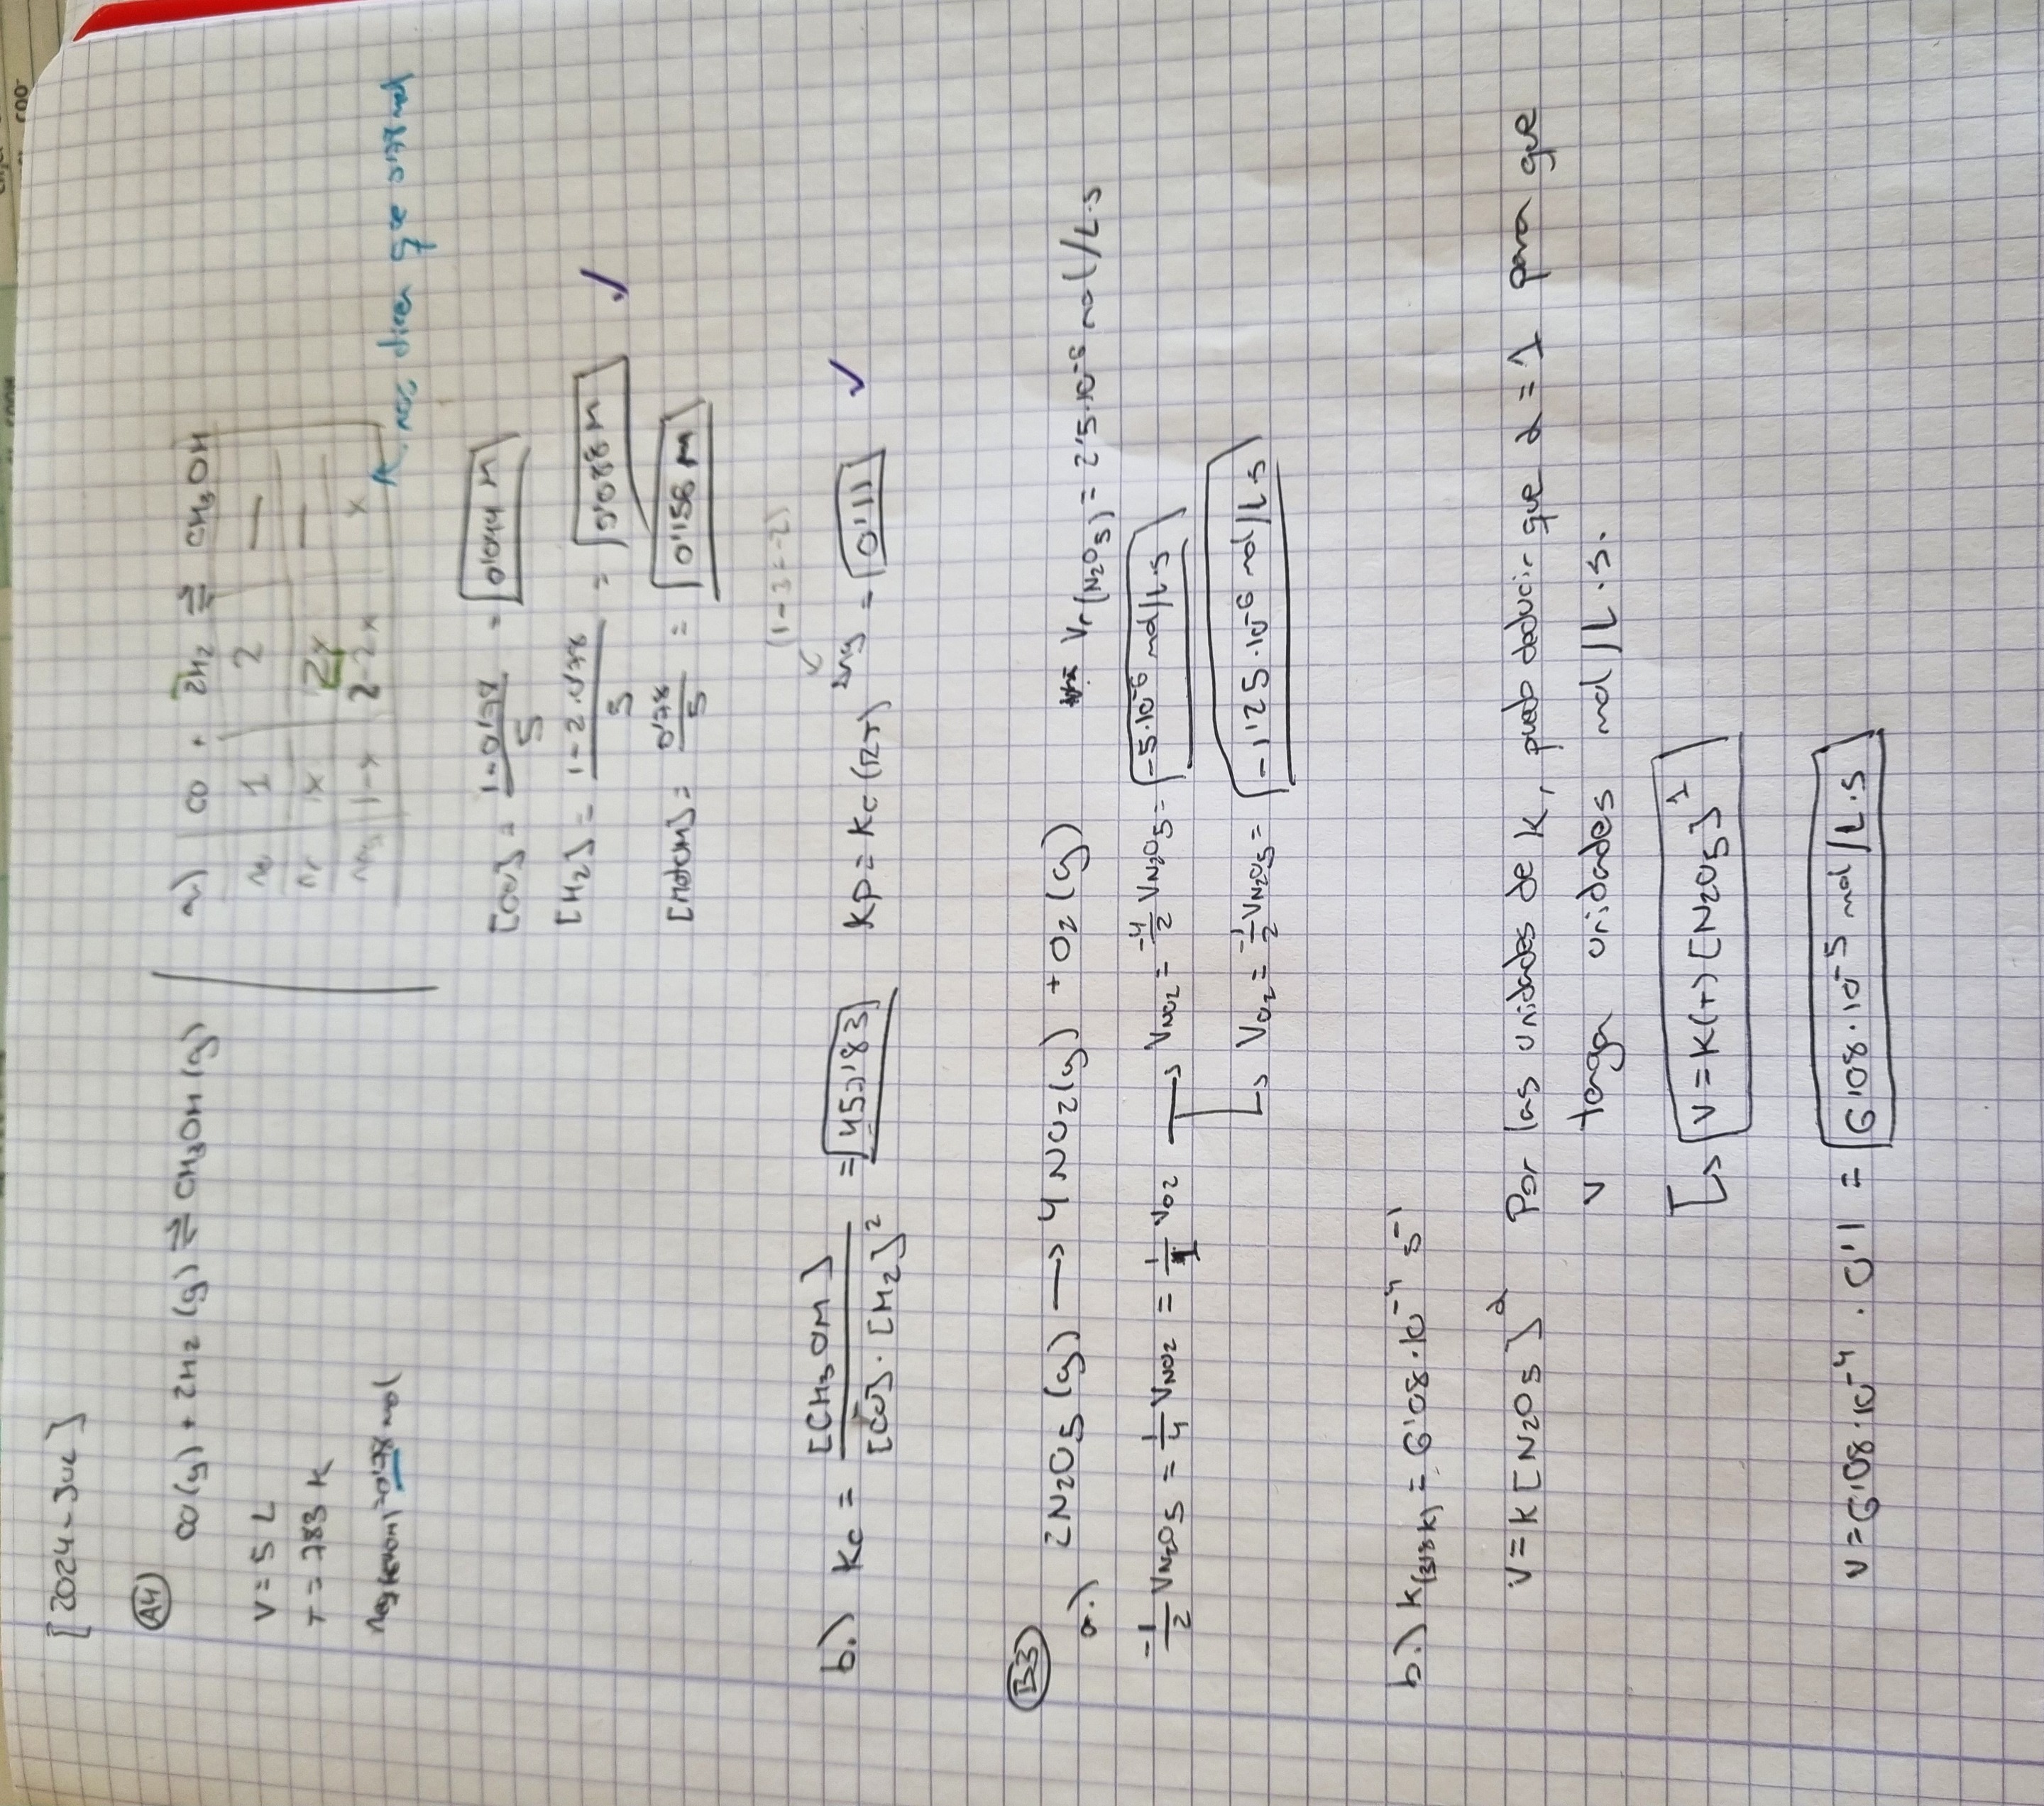 [2024-Jul]
A4
CO(g) + 2H₂(g) ⇌ CH₃OH(g)
V = 5 L
T = 783 K
a) CO + 2H₂ ⇌ CH₃OH
n₀ 1 2 —
nr x 2x —
neq 1-x 2-2x x
nos dicen que 0'78 mol
[CO] = 1-0'78/5 = 0'044 M
[H₂] = 1-2·0'78/5 = 0'088 M ✓
[MetOH] = 0'78/5 = 0'156 M
b.) Kc = [CH₃OH]/[CO]·[H₂]² = 457'83
(1-3=-2)
Kp = Kc(RT)^Δng = 0'11 ✓
B3
a.) 2N₂O₅(g) → 4NO₂(g) + O₂(g)
Vr(N₂O₅) = 2'5·10⁻⁶ mol/L·s
-1/2 V N₂O₅ = 1/4 V NO₂ = 1/1 V O₂ → V NO₂ = -4/2 V N₂O₅ = -5·10⁻⁶ mol/L·s
↳ V O₂ = -1/2 V N₂O₅ = -1'25·10⁻⁶ mol/L·s
b.) K(313 K) = 6'08·10⁻⁴ s⁻¹
V = K[N₂O₅]^α Por las unidades de K, puedo deducir que α = 1 para que
V tenga unidades mol/L·s.
↳ V = K(T)[N₂O₅]¹
V = 6'08·10⁻⁴ · 0'1 = 6'08·10⁻⁵ mol/L·s